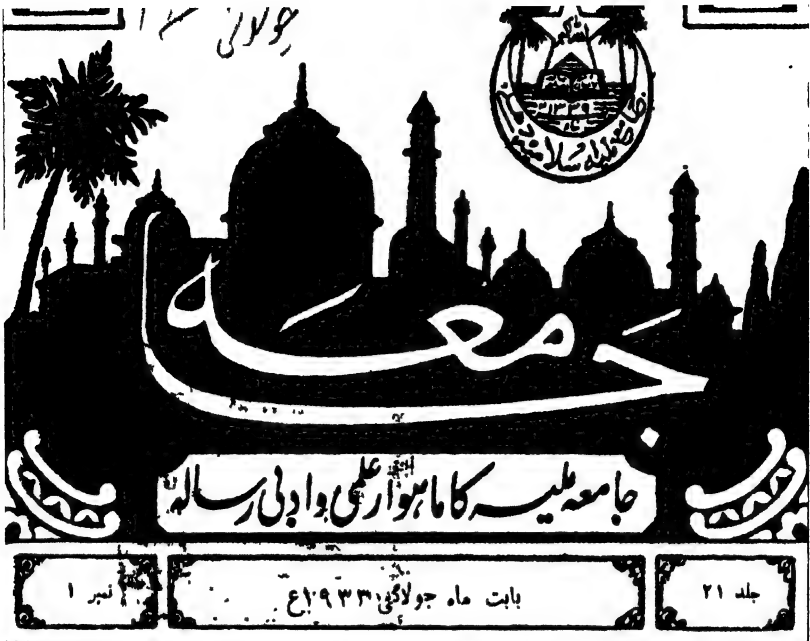 جولائی
جامعہ ملیہ اسلامیہ دہلی
جامعہ
جامعہ ملیہ کا ماہوار علمی و ادبی رسالہ
جلد ۲۱
بابت ماہ جولائی ۱۹۳۳ع
نمبر ۱